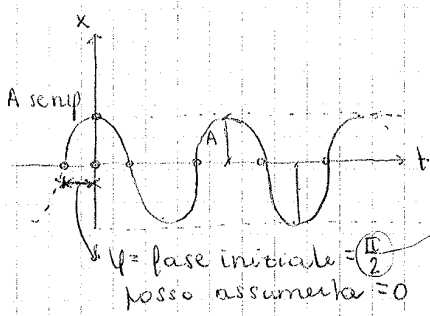 x
A senφ
A
t
φ = fase iniziale = π/2
posso assumerla = 0